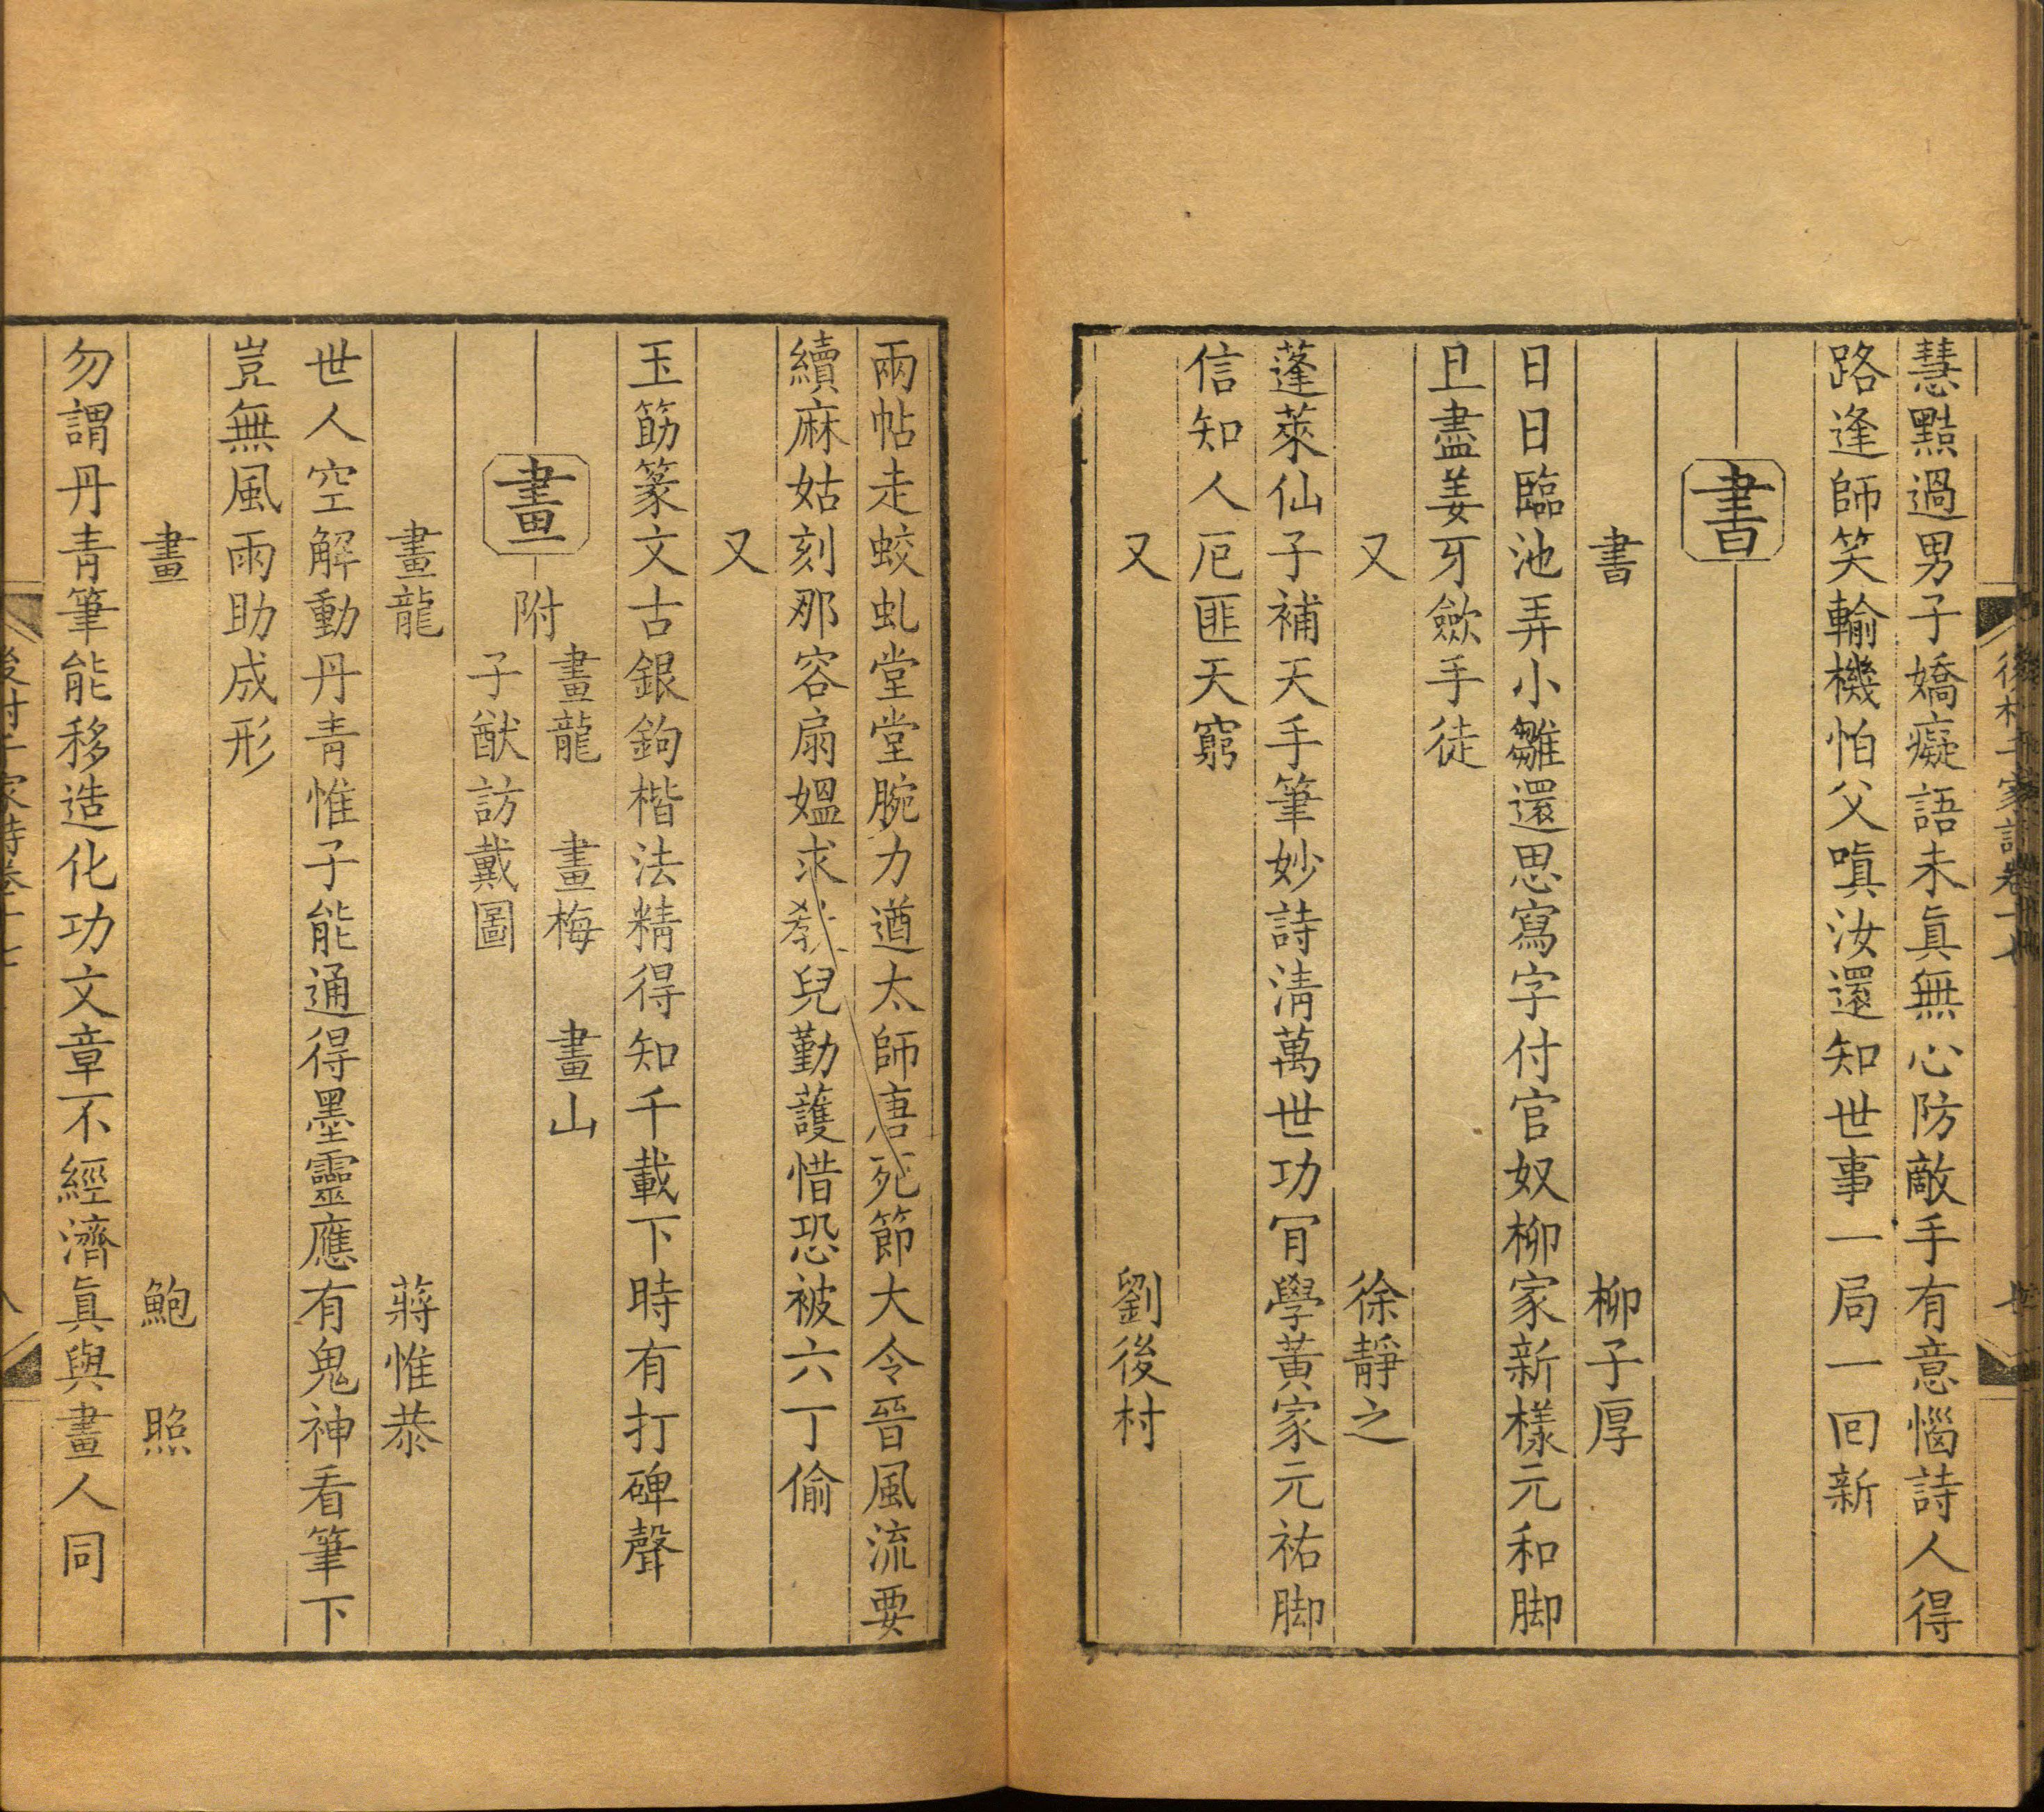 慧黠過男子嬌癡語未眞無心防敵手有意惱詩人得
路逢師笑輸機怕父嗔汝還知世事一局一回新
書
書 柳子厚
日日臨池弄小雛還思寫字付官奴柳家新樣元和脚
且盡姜牙斂手徒
又 徐靜之
蓬萊仙子補天手筆妙詩淸萬世功肎學黃家元祐脚
信知人厄匪天窮
又 劉後村
兩帖走蛟虬堂堂腕力遒太師唐死節大令晉風流要
續麻姑刻那容扇媼求敎兒勤護惜恐被六丁偷
又
玉筯篆文古銀鉤楷法精得知千載下時有打碑聲
畫 附 畫龍 畫梅 畫山
子猷訪戴圖
畫龍 蔣惟恭
世人空解動丹靑惟子能通得墨靈應有鬼神看筆下
豈無風雨助成形
畫 鮑照
勿謂丹靑筆能移造化功文章不經濟眞與畫人同